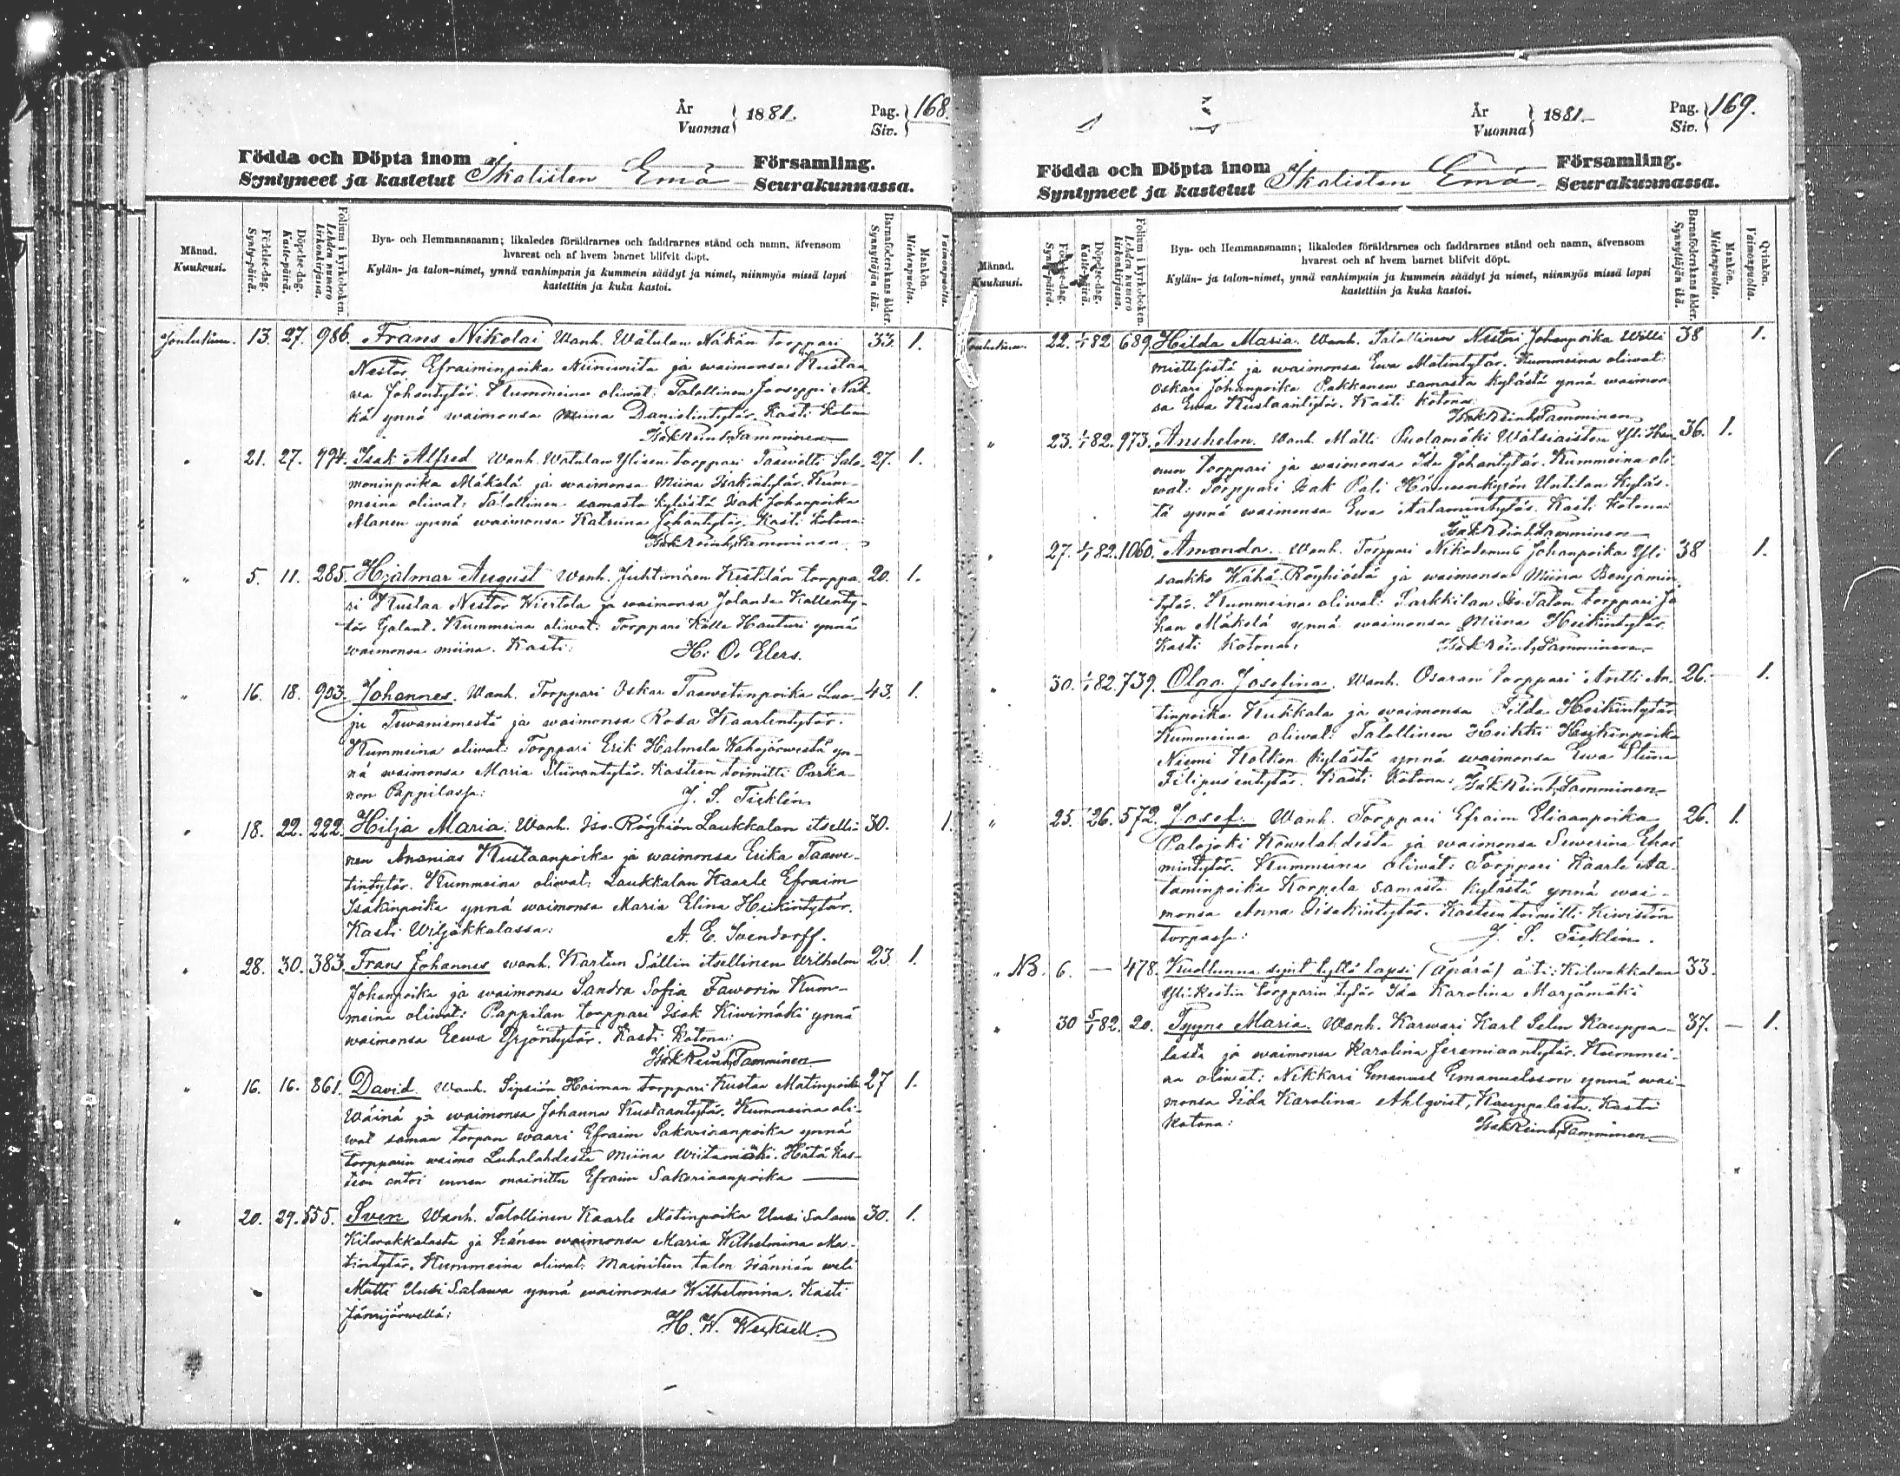 År
Vuonna } 1881.
Pag.
Siv. } 168.
Födda och Döpta inom
Syntyneet ja kastetut
Ikalisten Emä
Församling.
Seurakunnassa.
Månad.
Kuukausi.
Födelse-dag.
Synty-päivä.
Döpelse-dag.
Kaste-päivä.
Folium i kyrkoboken.
Lehden numero kirkonkirjassa.
Bya- och Hemmansnamn; likaledes föräldrarnes och faddrarnes stånd och namn, äfvensom
hvarest och af hvem barnet blifvit döpt.
Kylän- ja talon-nimet, ynnä vanhimpain ja kummein säädyt ja nimet, niinmyös missä lapsi
kastettiin ja kuka kastoi.
Barnaföderskans ålder.
Synnyttäjän ikä.
Mankön.
Miehenpuolta.
Vaimonpuolta.
Joulukuu. 13. 27. 986. Frans Nikolai Wanh. Wätulan Näkän torppari 33. 1.
Nestor Efraiminpoika Niiniwiita ja waimonsa Kustaa
wa Johantytär. Kummeina oliwat: Talollinen Jooseppi Näk-
kä ynnä waimonsa Miina Danielintytär. Kasti kotona
Isak Reinh. Tamminen
" 21. 27. 994. Isak Alfred Wanh. Watulan Ylisen torppari Taawetti Salo- 27. 1.
moninpoika Mäkelä ja waimonsa Miina Isakintytär. Kum-
meina oliwat: Talollinen samasta kylästä Isak Johanpoika
Alanen ynnä waimonsa Katriina Johantytär. Kasti kotona
Isak Reinh. Tamminen
" 5. 11. 285. Hjalmar August Wanh. Juhtimäen Kestilän torppa- 20. 1.
ri Kustaa Nestor Wiertola ja waimonsa Jolanda Kallenty-
tär Galant. Kummeina oliwat: Torppari Kalle Hauturi ynnä
waimonsa Miina. Kasti:
H. O. Elers.
" 16. 18. 903. Johannes. Wanh. Torppari Oskar Taawetinpoika Luo- 43. 1.
ju Tewaniemestä ja waimonsa Rosa Kaarlentytär.
Kummeina oliwat: Torppari Erik Halmela Wahojärwestä yn-
nä waimonsa Maria Stiinantytär. Kasteen toimitti Parka-
non Pappilassa:
J. S. Ticklén
" 18. 22. 222. Hilja Maria. Wanh. Iso-Röyhiön Laukkalan itselli- 30. 1.
nen Ananias Kustaanpoika ja waimonsa Erika Taawe-
tintytär. Kummeina oliwat: Laukkalan Kaarle Efraim
Isakinpoika ynnä waimonsa Maria Elina Heikintytär.
Kasti Wiljakkalassa:
A. E. Svendorff.
" 28. 30. 383. Frans Johannes Wanh. Kartun Sällin itsellinen Wilhelm 23. 1.
Johanpoika ja waimonsa Sandra Sofia Faworin Kum-
meina oliwat: Pappilan torppari Isak Kiwimäki ynnä
waimonsa Eewa Yrjöntytär. Kasti Kotona:
Isak Reinh. Tamminen
" 16. 16. 861. David. Wanh. Sipsiön Haiman torppari Kustaa Matinpoika 27 1.
Wäinä ja waimonsa Johanna Kustaantytär. Kummeina oli-
wat saman torpan waari Efraim Sakariaanpoika ynnä
torpparin waimo Luhalahdesta Miina Wiitamäki. Hätä kas-
teen antoi ennen mainittu Efraim Sakariaanpoika
" 20. 29. 555. Sven Wanh. Talollinen Kaarle Matinpoika Uusi Salawa 30. 1.
Kilwakkalasta ja hänen waimonsa Maria Wilhelmina Ma-
tintytär. Kummeina oliwat: Mainitun talon isännän weli
Matti Uusi Salawa ynnä waimonsa Wilhelmina. Kasti
Jämijärwellä:
H. W. Wexsell.
År
Vuonna } 1881.
Pag.
Siv. } 169.
Födda och Döpta inom
Syntyneet ja kastetut
Ikalisten Emä.
Församling.
Seurakunnassa.
Månad.
Kuukausi.
Födelse-dag.
Synty-päivä.
Döpelse-dag.
Kaste-päivä.
Folium i kyrkoboken.
Lehden numero kirkonkirjassa.
Bya- och Hemmansnamn; likaledes föräldrarnes och faddrarnes stånd och namn, äfvensom
hvarest och af hvem barnet blifvit döpt.
Kylän- ja talon-nimet, ynnä vanhimpain ja kummein säädyt ja nimet, niinmyös missä lapsi
kastettiin ja kuka kastoi.
Barnaföderskans ålder.
Synnyttäjän ikä.
Mankön.
Miehenpuolta.
Qvinkön.
Vaimonpuolta.
Joulukuu. 22. 1/1 82. 689. Hilda Maria. Wanh. Talollinen Nestori Johanpoika Willi 38 1.
miettisistä ja waimonsa Ewa Matintytär. Kummeina oliwat:
Oskari Johanpoika Pakkanen samasta kylästä ynnä waimon-
sa Ewa Kustaantytär. Kasti kotona
Isak Reinh. Tamminen
" 23. 1/1 82. 973. Anshelm. Wanh. Matti Pudamäki Wätsiaisten Yli Hee- 36. 1.
nun torppari ja waimonsa Ida Johantytär. Kummeina oli-
wat: Torppari Isak Pati Hämeenkyrön Untilan Kyläs-
tä ynnä waimonsa Ewa Aatamintytär. Kasti kotona
Isak Reinh. Tamminen
" 27. 1/1 82. 1060. Amanda. Wanh. Torppari Nikodemus Johanpoika Yli 38 1.
saukko Wähä Röyhiöstä ja waimonsa Miina Benjamin-
tytär. Kummeina oliwat: Sarkkilan Iso-Talon torppari Jo
han Mäkelä ynnä waimonsa Miina Heikintytär.
Kasti Kotona:
Isak Reinh. Tamminen
" 30. 1/1 82. 739. Olga Josefina. Wanh. Osaran torppari Antti An- 26. 1.
tinpoika Kukkala ja waimonsa Tilda Heikintytär
Kummeina oliwat: Talollinen Heikki Heikinpoika
Niemi Kolkon kylästä ynnä waimonsa Ewa Stiina
Filipus'entytär. Kasti Kotona: Isak Reinh. Tamminen
" 25. 26. 572. Josef. Wanh. Torppari Efraim Eliaanpoika 26. 1.
Palojoki Kowelahdesta ja waimonsa Sewerina Efrai-
mintytär. Kummeina oliwat: Torppari Kaarle Aa-
taminpoika Korpela samasta kylästä ynnä wai-
monsa Anna Iisakintytär. Kasteen toimitti Kiwistön
torpassa:
J. S. Ticklén.
" NB. 6. — 478. Kuollunna synt. tyttö lapsi (äpärä) äiti: Kilwakkalan 33.
Ylikestin torpparin tytär Ida Karolina Marjamäki
" 30 5/1 82. 20. Tyyne Maria. Wanh. Karwari Karl Selin Kauppa- 37. — 1.
lasta ja waimonsa Karolina Jeremiaantytär. Kummei-
na oliwat: Nikkari Emanuel Emanuelsson ynnä wai-
monsa Iida Karolina Ahlqvist, Kauppalasta. Kasti
kotona:
Isak Reinh. Tamminen